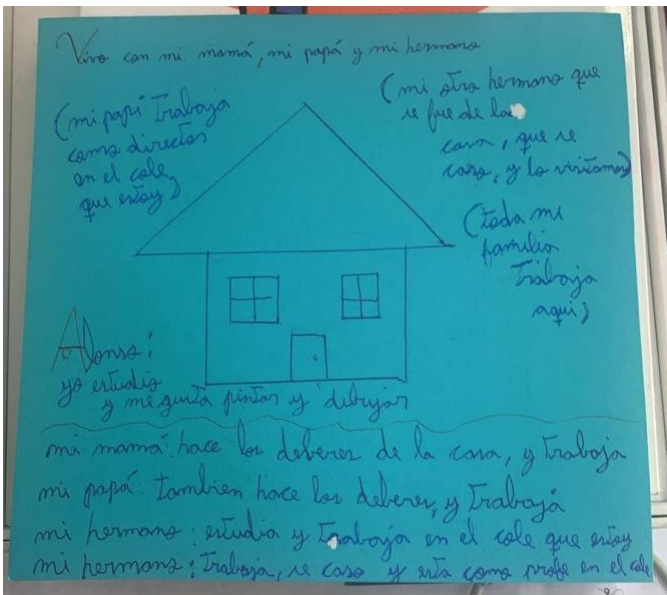 Vivo con mi mamá, mi papá y mi hermano
(mi papi trabaja
como director
en el cole
que estoy)
(mi otro hermano que
se fue de la
casa, que se
caso, y lo visitamos)
(toda mi
familia
trabaja
aqui)
Alonso:
yo estudio
y me gusta pintar y dibujar
mi mamá: hace los deberes de la casa, y trabaja
mi papá: tambien hace los deberes, y trabaja
mi hermano: estudia y trabaja en el cole que estoy
mi hermano: trabaja, se caso y esta como profe en el cole